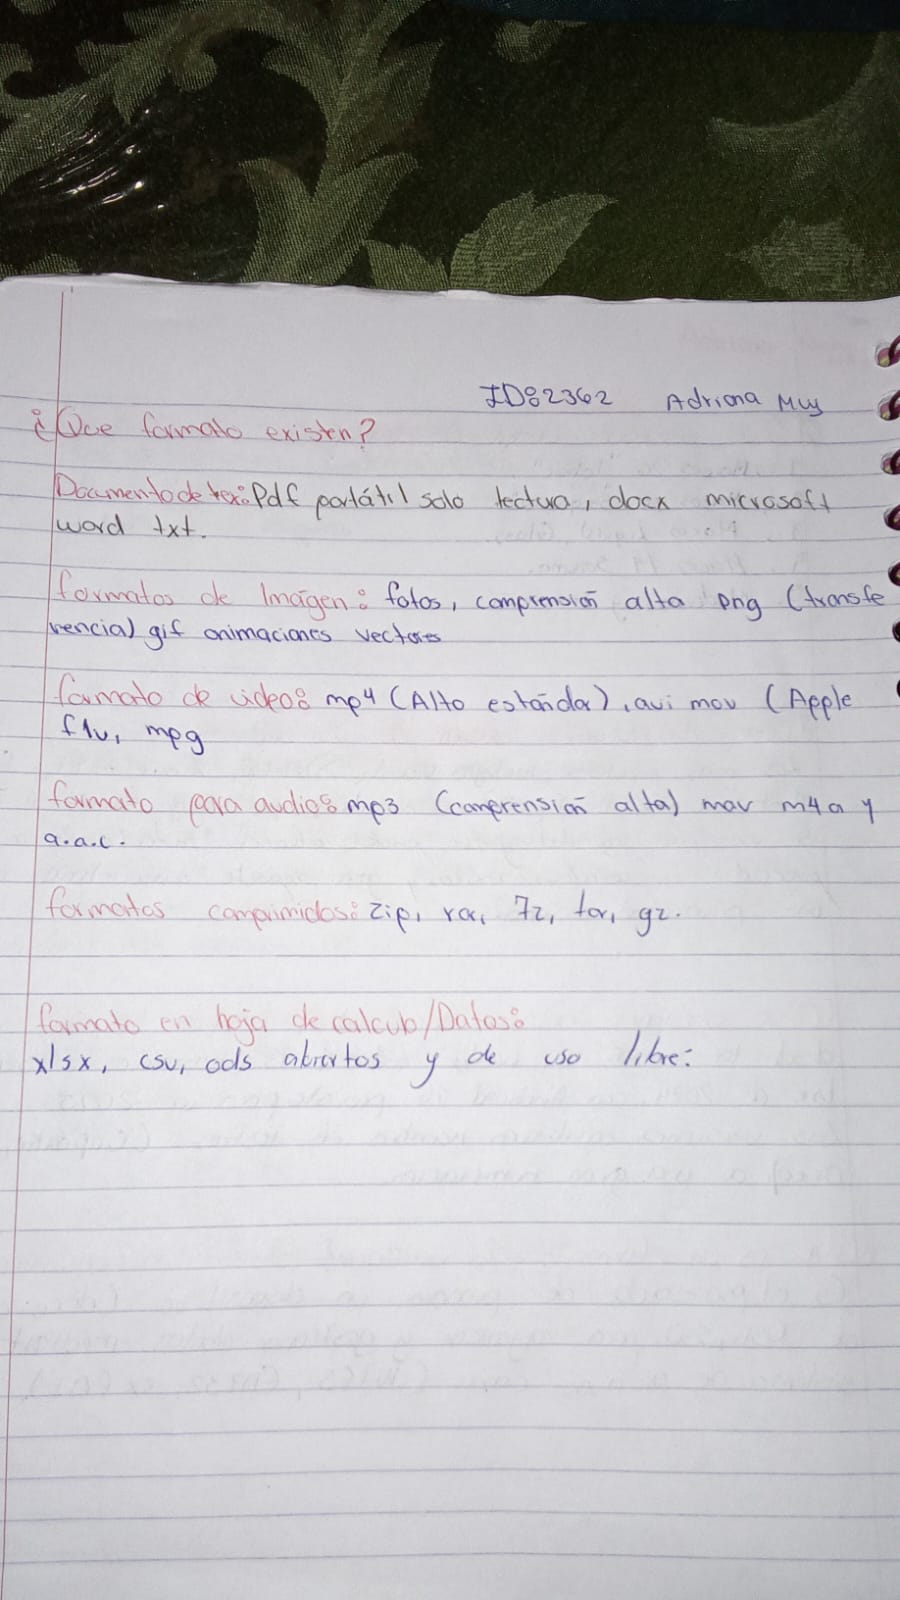 ID:2362 Adriana Muy
¿Que formato existen?
Documento de tex: Pdf portátil solo lectura, docx microsoft
word txt.
formatos de Imágen: fotos, comprensión alta png (transfe
rencia) gif animaciones vectores
formato de video: mp4 (Alto estándar), avi mov (Apple
flv, mpg
formato para audio: mp3 (comprensión alta) mav m4a y
a.a.c.
formatos comprimidos: zip, rar, 7z, tar, gz.
formato en hoja de calculo/Datos:
xlsx, csv, ods abiertos y de uso libre: